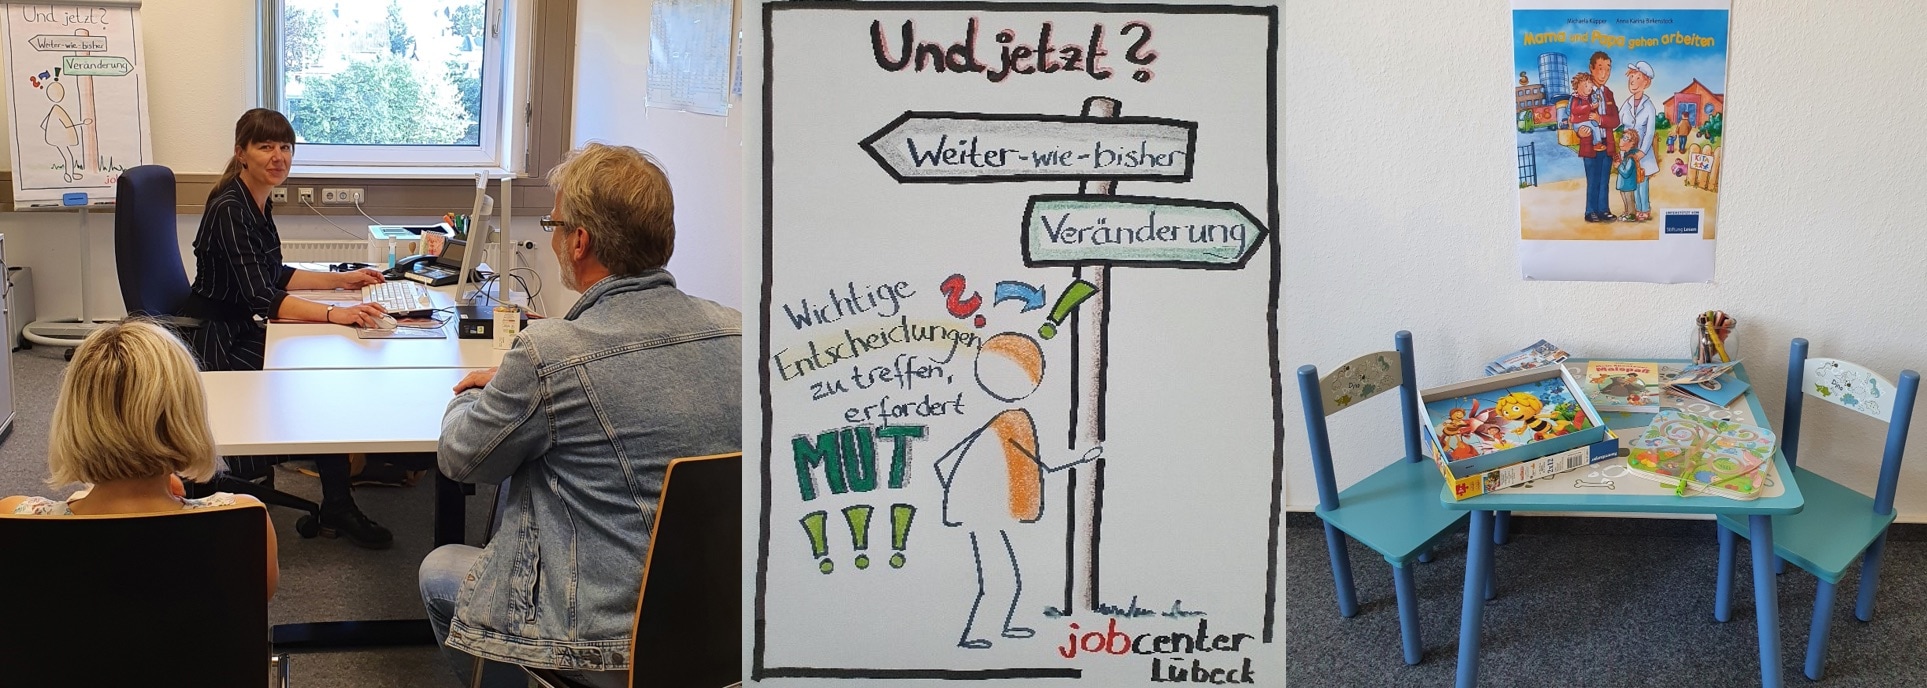 Und jetzt?
Weiter-wie-bisher
Veränderung
Und jetzt?
Weiter-wie-bisher
Veränderung
Wichtige
Entscheidungen
zu treffen,
erfordert
MUT
!!!
jobcenter
Lübeck
Michaela Küpper Anna Karina Birkenstock
Mama und Papa gehen arbeiten
KITA
Stiftung Lesen
Malspaß
2x12